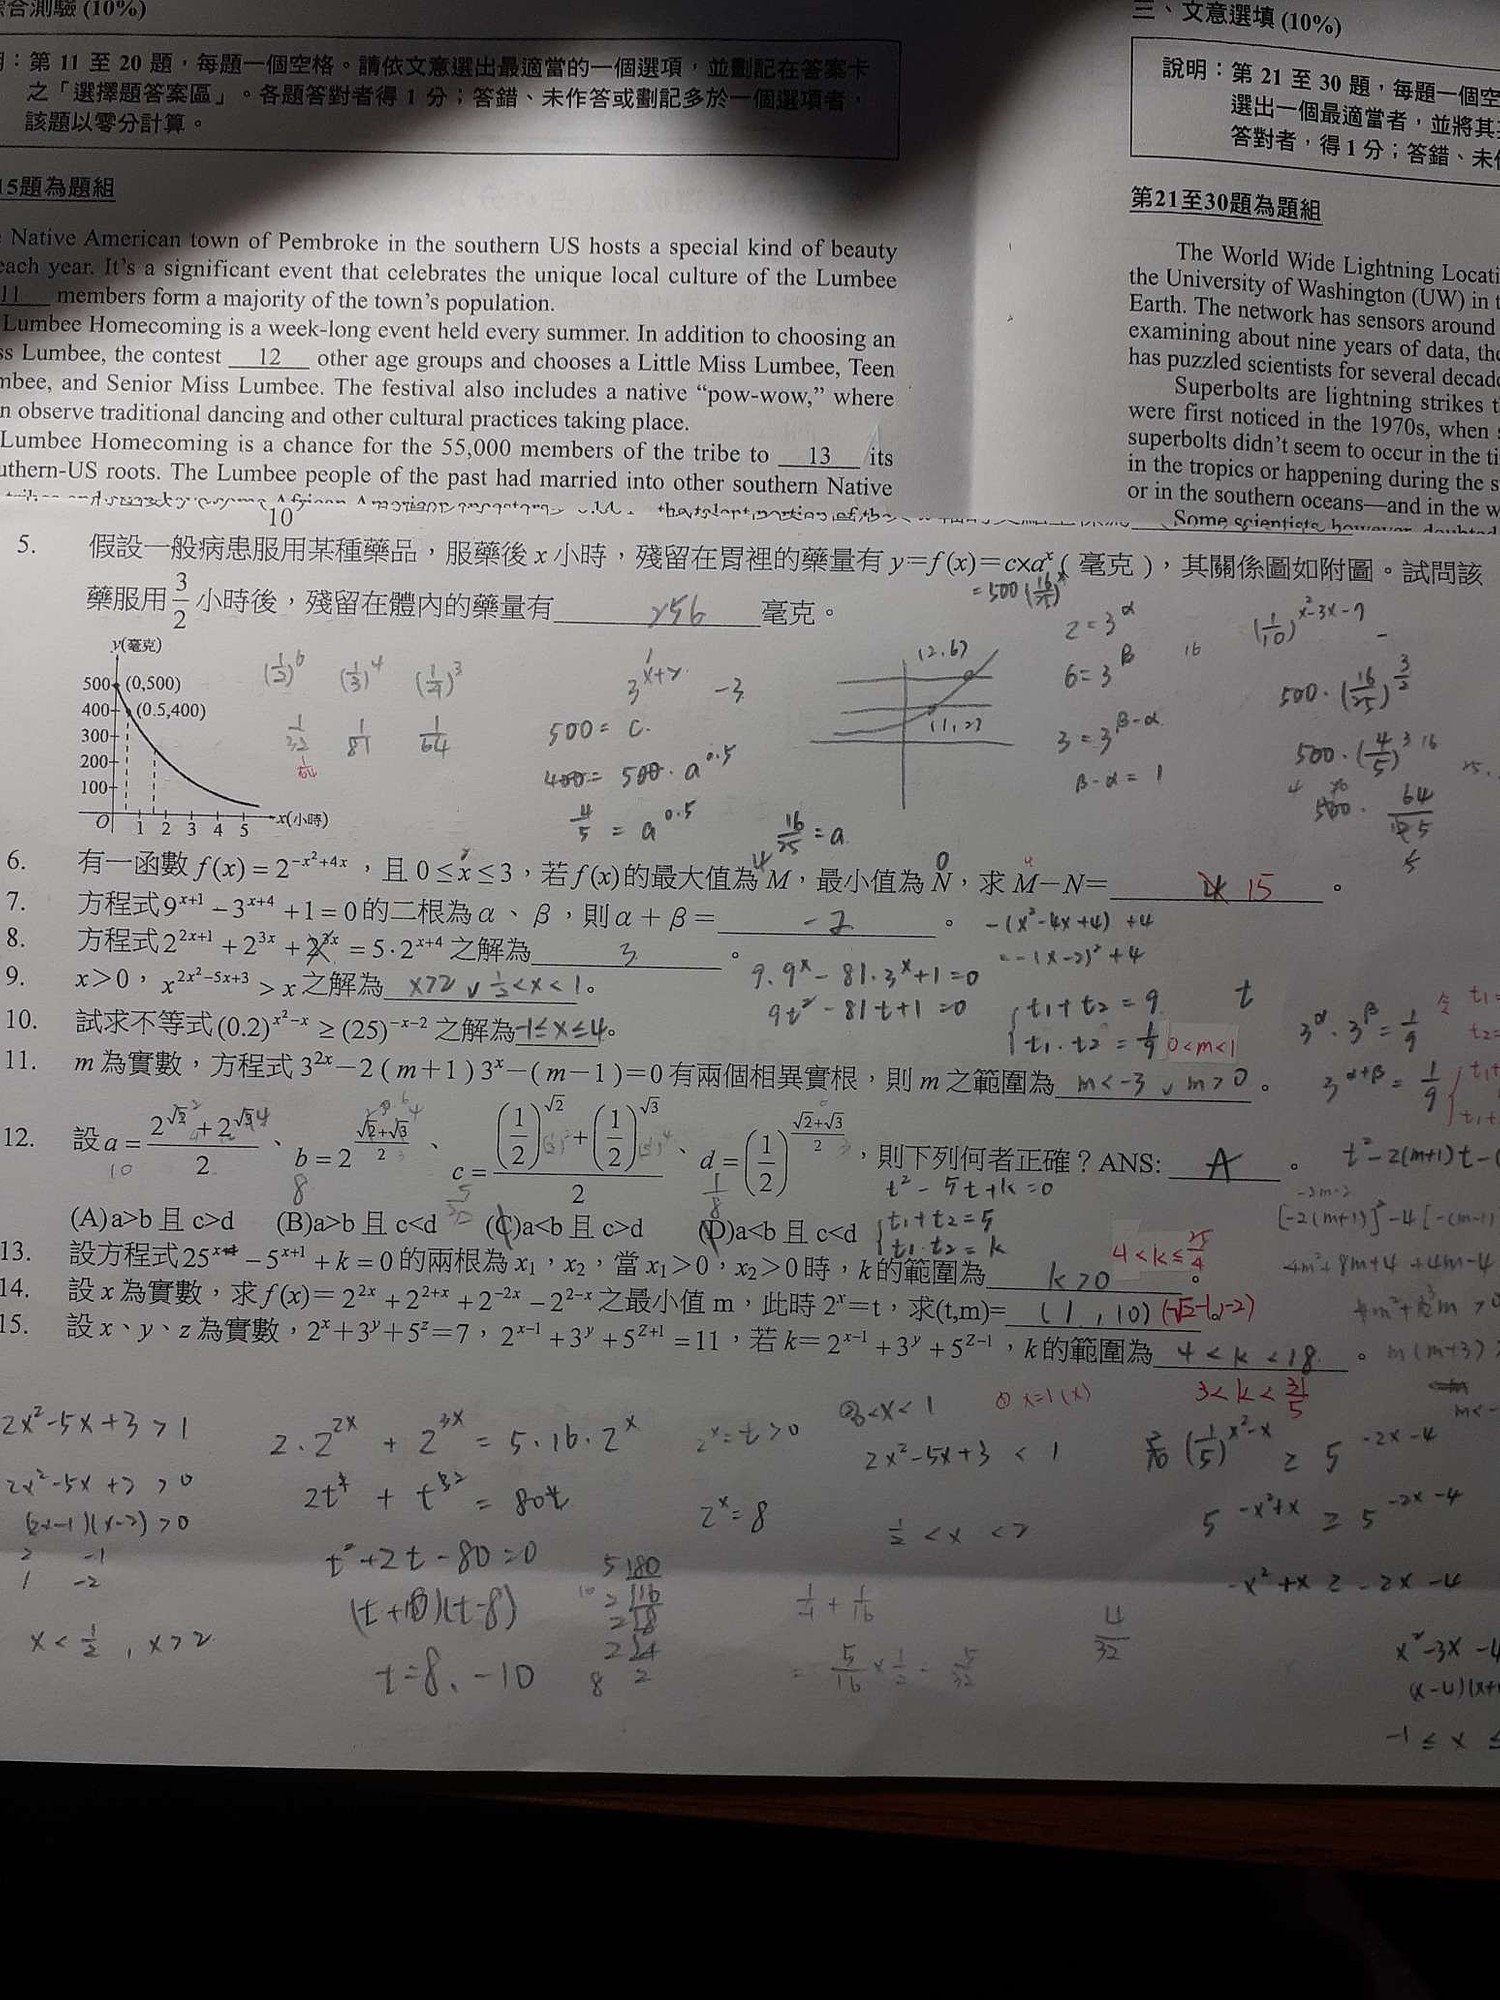 綜合測驗 (10%)
明：第 11 至 20 題，每題一個空格。請依文意選出最適當的一個選項，並劃記在答案卡
之「選擇題答案區」。各題答對者得 1 分；答錯、未作答或劃記多於一個選項者，
該題以零分計算。
15題為題組
Native American town of Pembroke in the southern US hosts a special kind of beauty
each year. It's a significant event that celebrates the unique local culture of the Lumbee
11 members form a majority of the town's population.
Lumbee Homecoming is a week-long event held every summer. In addition to choosing an
ss Lumbee, the contest 12 other age groups and chooses a Little Miss Lumbee, Teen
mbee, and Senior Miss Lumbee. The festival also includes a native “pow-wow,” where
n observe traditional dancing and other cultural practices taking place.
Lumbee Homecoming is a chance for the 55,000 members of the tribe to 13 its
uthern-US roots. The Lumbee people of the past had married into other southern Native
三、文意選填 (10%)
說明：第 21 至 30 題，每題一個空
選出一個最適當者，並將其
答對者，得 1 分；答錯、未
第21至30題為題組
The World Wide Lightning Locati
the University of Washington (UW) in t
Earth. The network has sensors around
examining about nine years of data, the
has puzzled scientists for several decade
Superbolts are lightning strikes t
were first noticed in the 1970s, when
superbolts didn't seem to occur in the ti
in the tropics or happening during the s
or in the southern oceans—and in the w
Some scientists, however, doubted
10
5. 假設一般病患服用某種藥品，服藥後 x 小時，殘留在胃裡的藥量有 y=f(x)=c×a^x ( 毫克 )，其關係圖如附圖。試問該
= 500 (16/25)^x
藥服用 3/2 小時後，殘留在體內的藥量有 256 毫克。
y(毫克)
500 (0,500)
400 (0.5,400)
300
200
100
O 1 2 3 4 5 x(小時)
(1/2)^6 (1/3)^4 (1/4)^3
1/32 1/81 1/64
1/64
3^(x+2) -3
500 = c
400 = 500 · a^0.5
4/5 = a^0.5
16/25 = a
(2,6)
(1,2)
2 = 3^α
6 = 3^β
3 = 3^(β-α)
β-α = 1
16
500 · (16/25)^(3/2)
500 · (4/5)^3
6. 有一函數 f(x) = 2^(-x²+4x)，且 0≤x≤3，若 f(x) 的最大值為 M，最小值為 N，求 M−N= 15。
7. 方程式 9^(x+1) − 3^(x+4) + 1 = 0 的二根為 α、β，則 α+β= -2。
-(x²-4x+4) +4
= -(x-2)² +4
8. 方程式 2^(2x+1) + 2^(3x) = 5·2^(x+4) 之解為 3。
9·9^x - 81·3^x + 1 = 0
9t² - 81t + 1 = 0
t1 + t2 = 9
t1 · t2 = 1/9
t
9. x>0，x^(2x²−5x+3) > x 之解為 x>2 ∨ 1/2<x<1。
3^α · 3^β = 1/9
3^(α+β) = 1/9
10. 試求不等式 (0.2)^(x²−x) ≥ (25)^(−x−2) 之解為 -1≤x≤4。
0<m<1
11. m 為實數，方程式 3^(2x) − 2 ( m+1 ) 3^x − ( m−1 ) = 0 有兩個相異實根，則 m 之範圍為 m<-3 ∨ m>0。
12. 設 a = (2^√2 + 2^√3)/2、b = 2^((√2+√3)/2)、c = ((1/2)^√2 + (1/2)^√3)/2、d = (1/2)^((√2+√3)/2)，則下列何者正確？ANS: A。
10 8 5/32 1/8
(A)a>b 且 c>d (B)a>b 且 c<d (C)a<b 且 c>d (D)a<b 且 c<d
t² - 5t + k = 0
t1 + t2 = 5
t1 · t2 = k
13. 設方程式 25^x − 5^(x+1) + k = 0 的兩根為 x₁，x₂，當 x₁>0，x₂>0 時，k 的範圍為 k>0。
4 < k ≤ 25/4
14. 設 x 為實數，求 f(x) = 2^(2x) + 2^(2+x) + 2^(−2x) − 2^(2−x) 之最小值 m，此時 2^x = t，求(t,m)= (1, 10) (√2-1, -2)
15. 設 x、y、z 為實數，2^x + 3^y + 5^z = 7，2^(x−1) + 3^y + 5^(z+1) = 11，若 k = 2^(x−1) + 3^y + 5^(z−1)，k 的範圍為 4 < k < 18。
3 < k < 31/5
2x²-5x+3 > 1
2x²-5x+2 > 0
(2x-1)(x-2) > 0
2 -1
1 -2
x < 1/2 , x > 2
2·2^(2x) + 2^(3x) = 5·16·2^x
t² + 2t - 80 = 0
(t+10)(t-8)
t = 8, -10
2^x = t > 0
2^x = 8
0 < x < 1
① x=1 (x)
2x²-5x+3 < 1
1/2 < x < 2
1/4 + 1/16
= 5/16 × 1/2 = 5/32
4/32
(1/5)^(x²-x) ≥ 5^(-2x-4)
5^(-x²+x) ≥ 5^(-2x-4)
-x²+x ≥ -2x-4
x²-3x-4
-1 ≤ x ≤